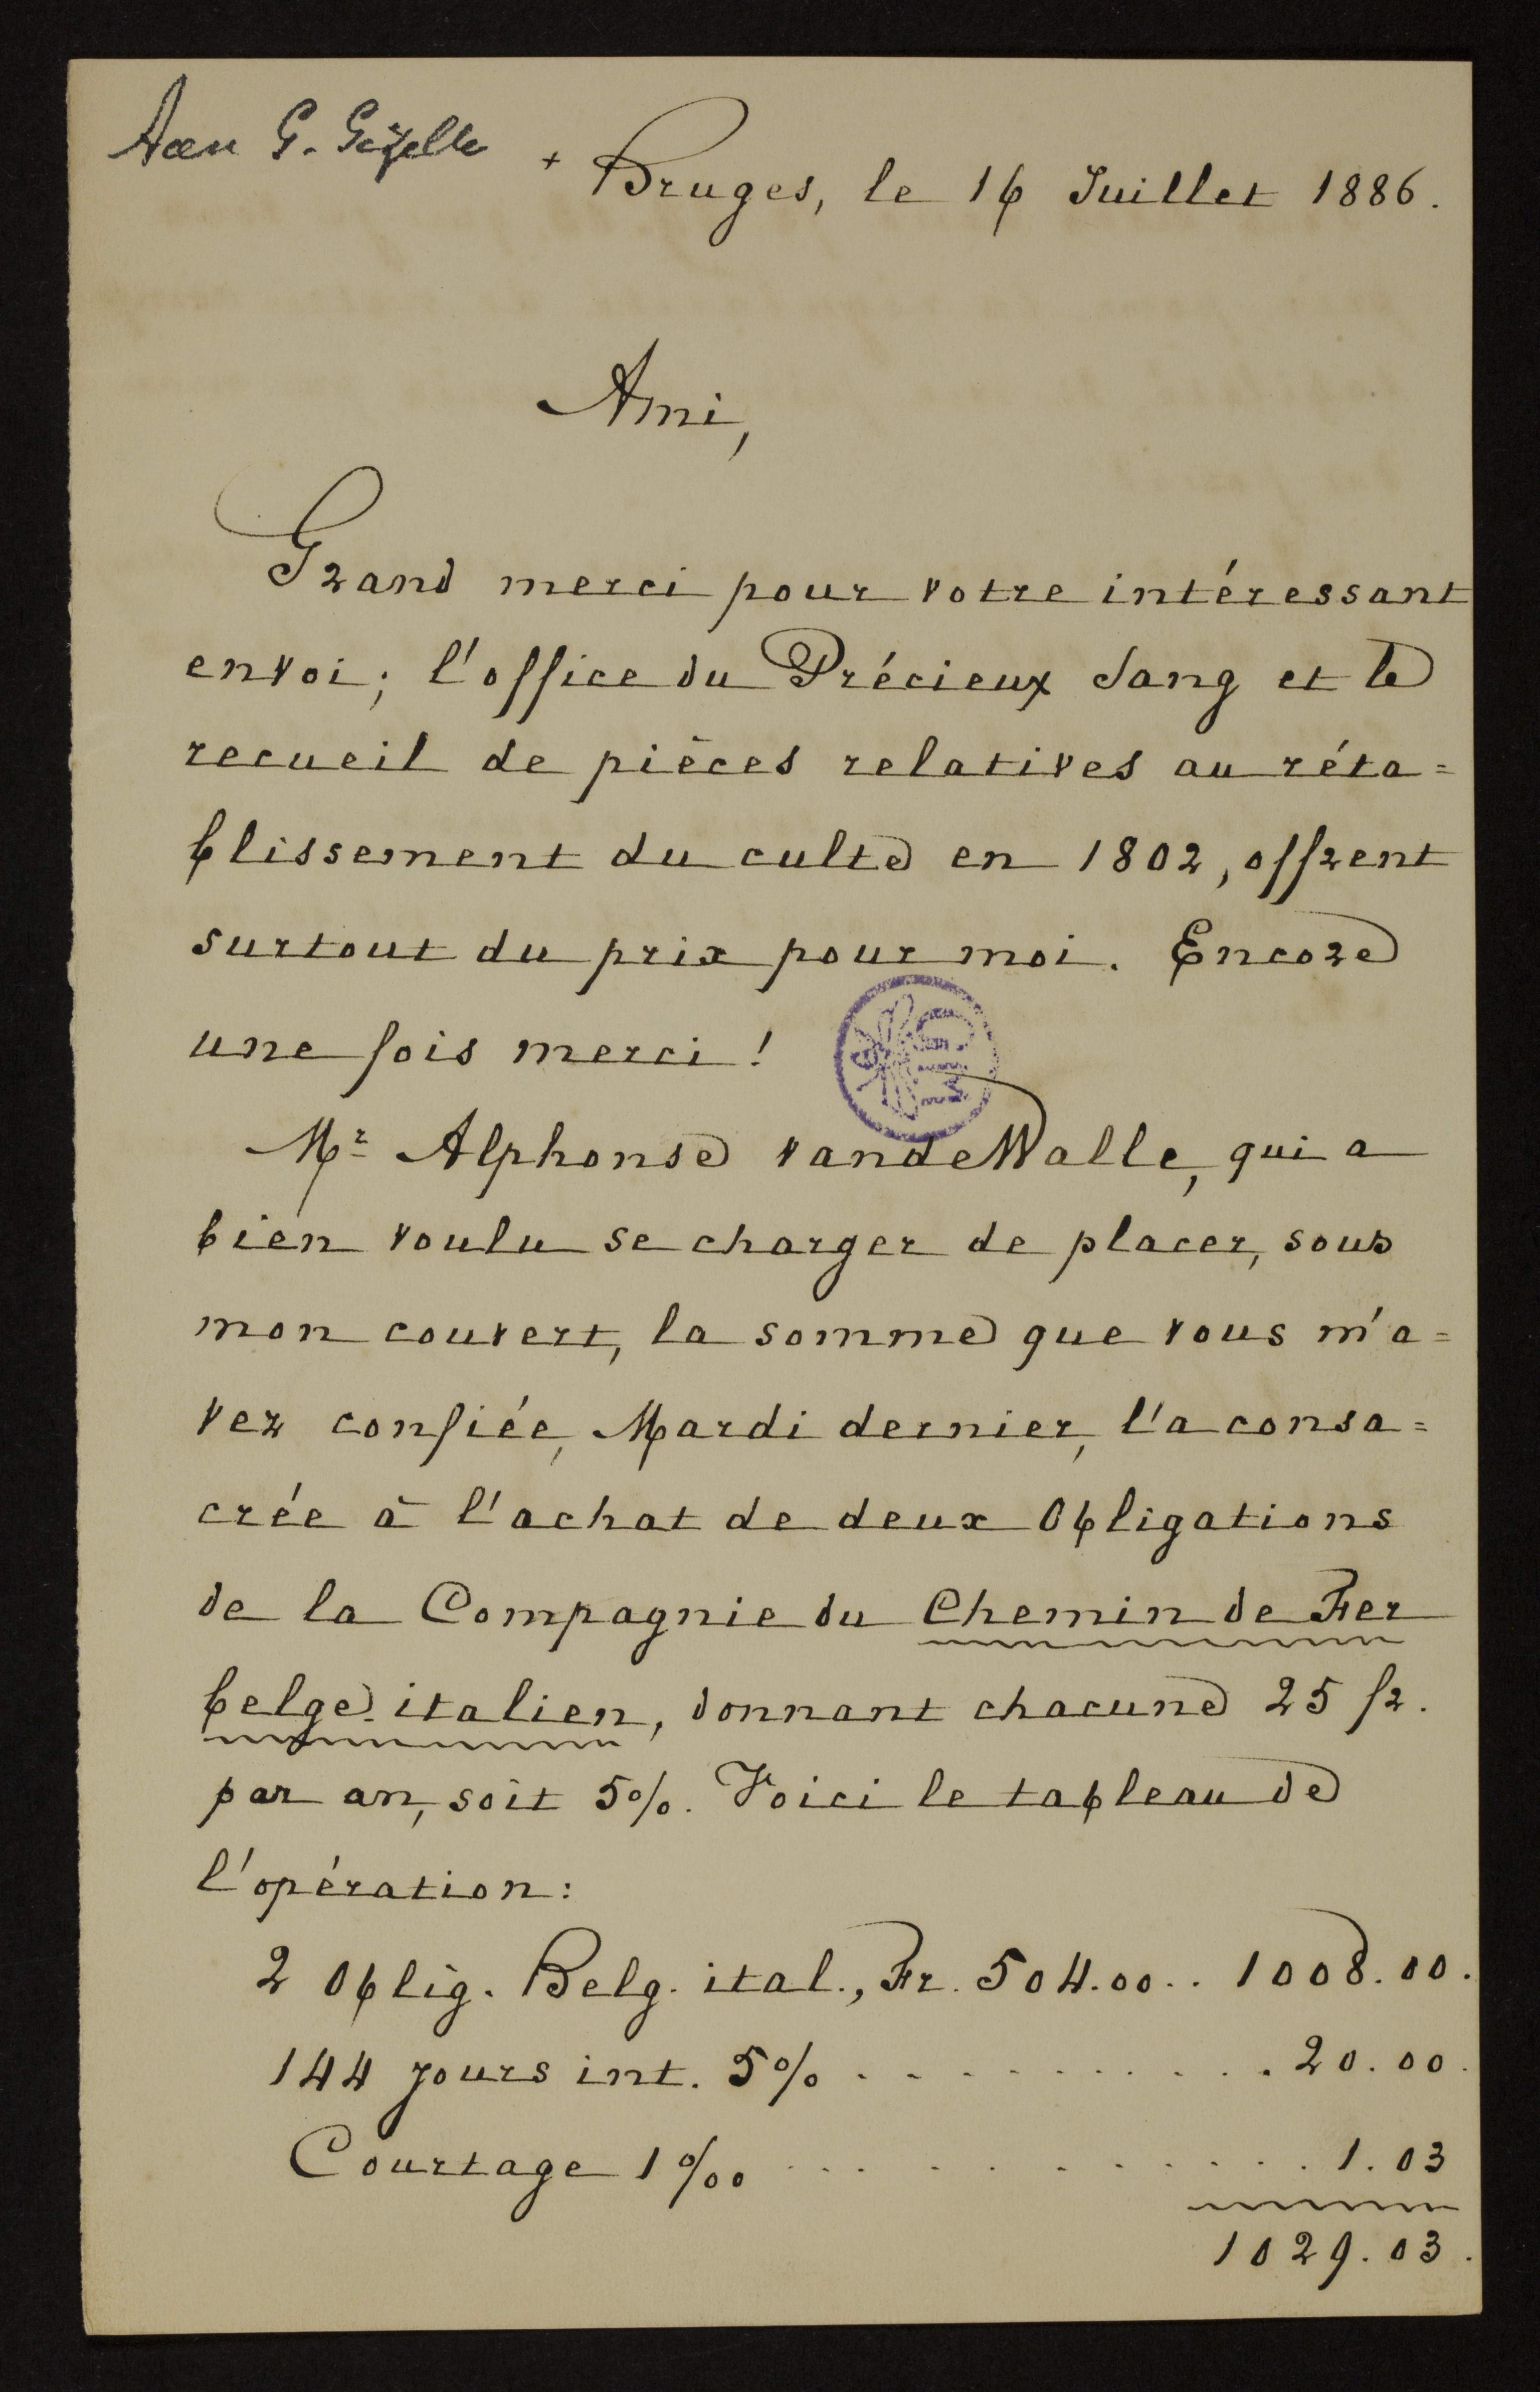 Aan G. Gezelle
+ Bruges, le 16 Juillet 1886.
Ami,
Grand merci pour votre intéressant
envoi; l'office du Précieux Sang et le
recueil de pièces relatives au réta=
blissement du culte en 1802, offrent
surtout du prix pour moi. Encore
une fois merci!
Mr Alphonse vandeWalle, qui a
bien voulu se charger de placer, sous
mon couvert, la somme que vous m'a=
vez confiée, Mardi dernier, l'a consa=
crée à l'achat de deux Obligations
de la Compagnie du Chemin de Fer
belge-italien, donnant chacune 25 fr.
par an, soit 5%. Voici le tableau de
l'opération:
2 Oblig. Belg. ital., Fr. 504.00.. 1008.00.
144 jours int. 5% . . . . . . . . . . . 20.00.
Courtage 1‰ . . . . . . . . . . . . 1.03
1029.03.